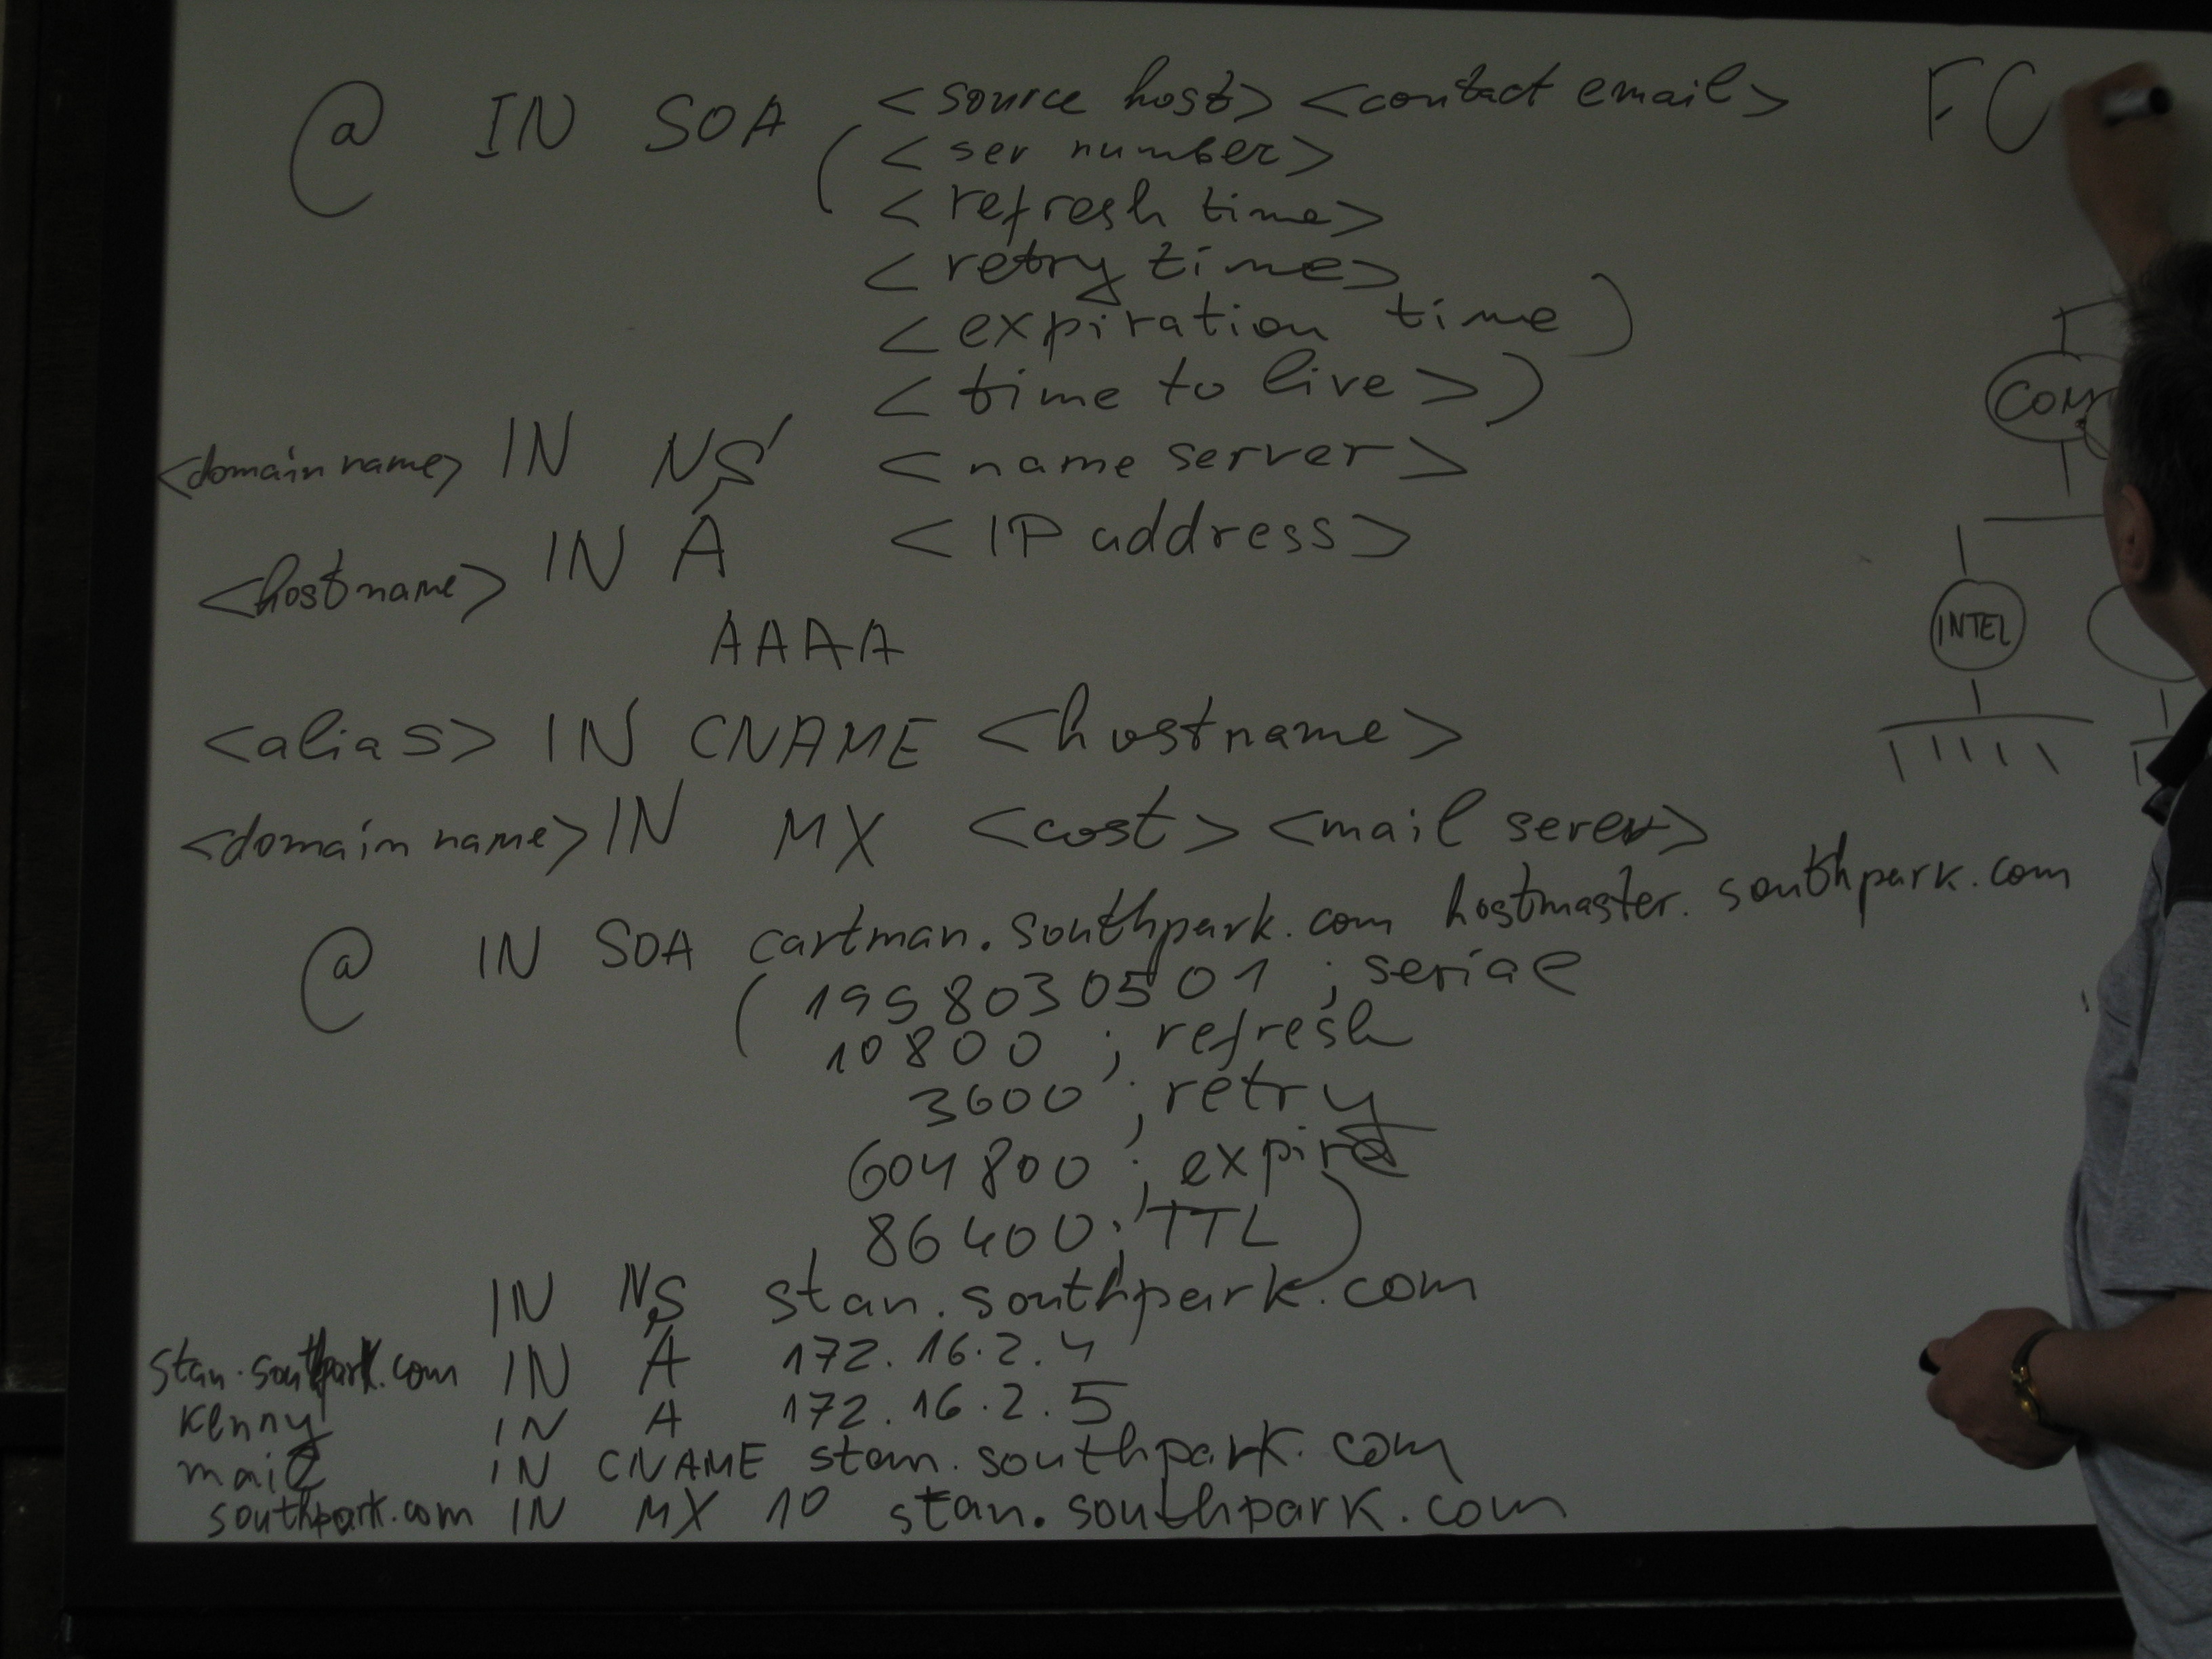 @ IN SOA <source host> <contact email>
( <ser number>
<refresh time>
<retry time>
<expiration time )
<time to live>)
<domain name> IN NS <name server>
<hostname> IN A <IP address>
AAAA
<alias> IN CNAME <hostname>
<domain name> IN MX <cost> <mail serer>
@ IN SOA cartman.southpark.com hostmaster.southpark.com
( 1998030501 ; serial
10800 ; refresh
3600 ; retry
604800 ; expire
86400 ; TTL )
IN NS stan.southpark.com
stan.southpark.com IN A 172.16.2.4
kenny IN A 172.16.2.5
mail IN CNAME stan.southpark.com
southpark.com IN MX 10 stan.southpark.com
FC
COM
INTEL